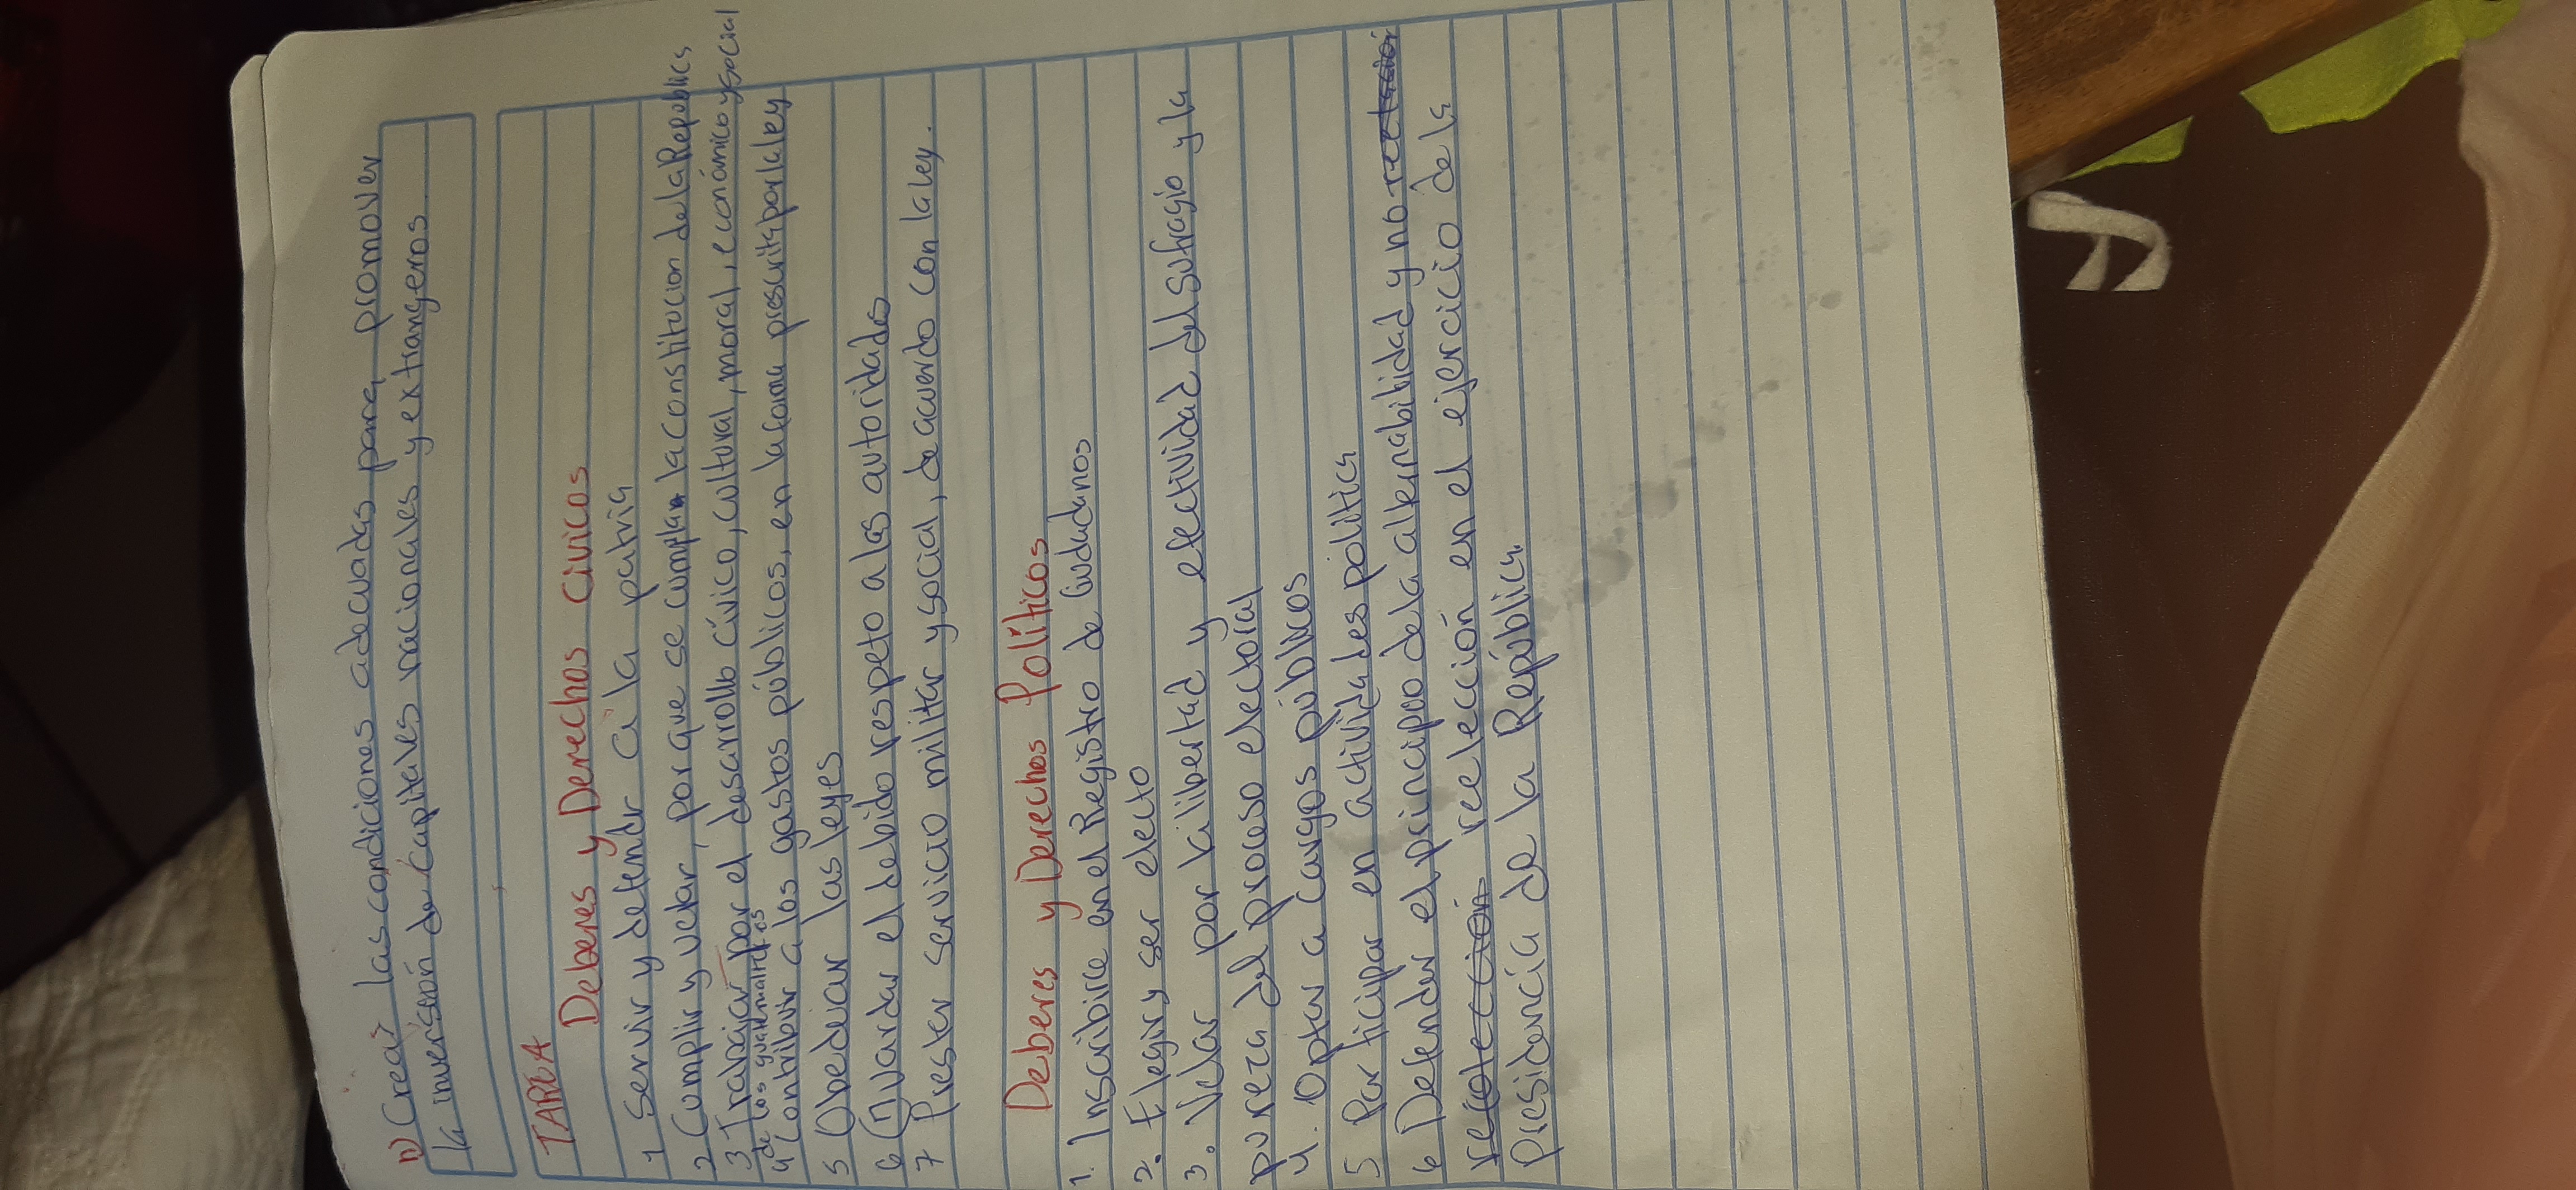 n) Crear las condiciones adecuadas para promover
la inversión de capitales nacionales y extrangeros.
TAREA
Deberes y Derechos Civicos
1 Servir y defendr a la patria
2 Cumplir y velar, por que se cumplan la constitucion de la Republica
3 Trabajar por el desarrollo cívico, cultural, moral, económico y social
de los guatemaltecos
4 Contribuir a los gastos públicos, en la forma prescrita por la ley
5 Obedecer las leyes
6 Guardar el debido respeto a las autoridades
7 Prestar servicio militar y social, de acuerdo con la ley.
Deberes y Derechos Políticos
1. Inscribirce en el Registro de Ciudadanos
2. Elegir y ser electo
3. Velar por la libertad y efectividad del sufragio y la
pureza del proceso electoral
4. Optar a cargos públicos
5 Participar en actividades politica
6 Defender el principoo de la alternabilidad y no
reelección en el ejercicio de la
Presidencia de la República.